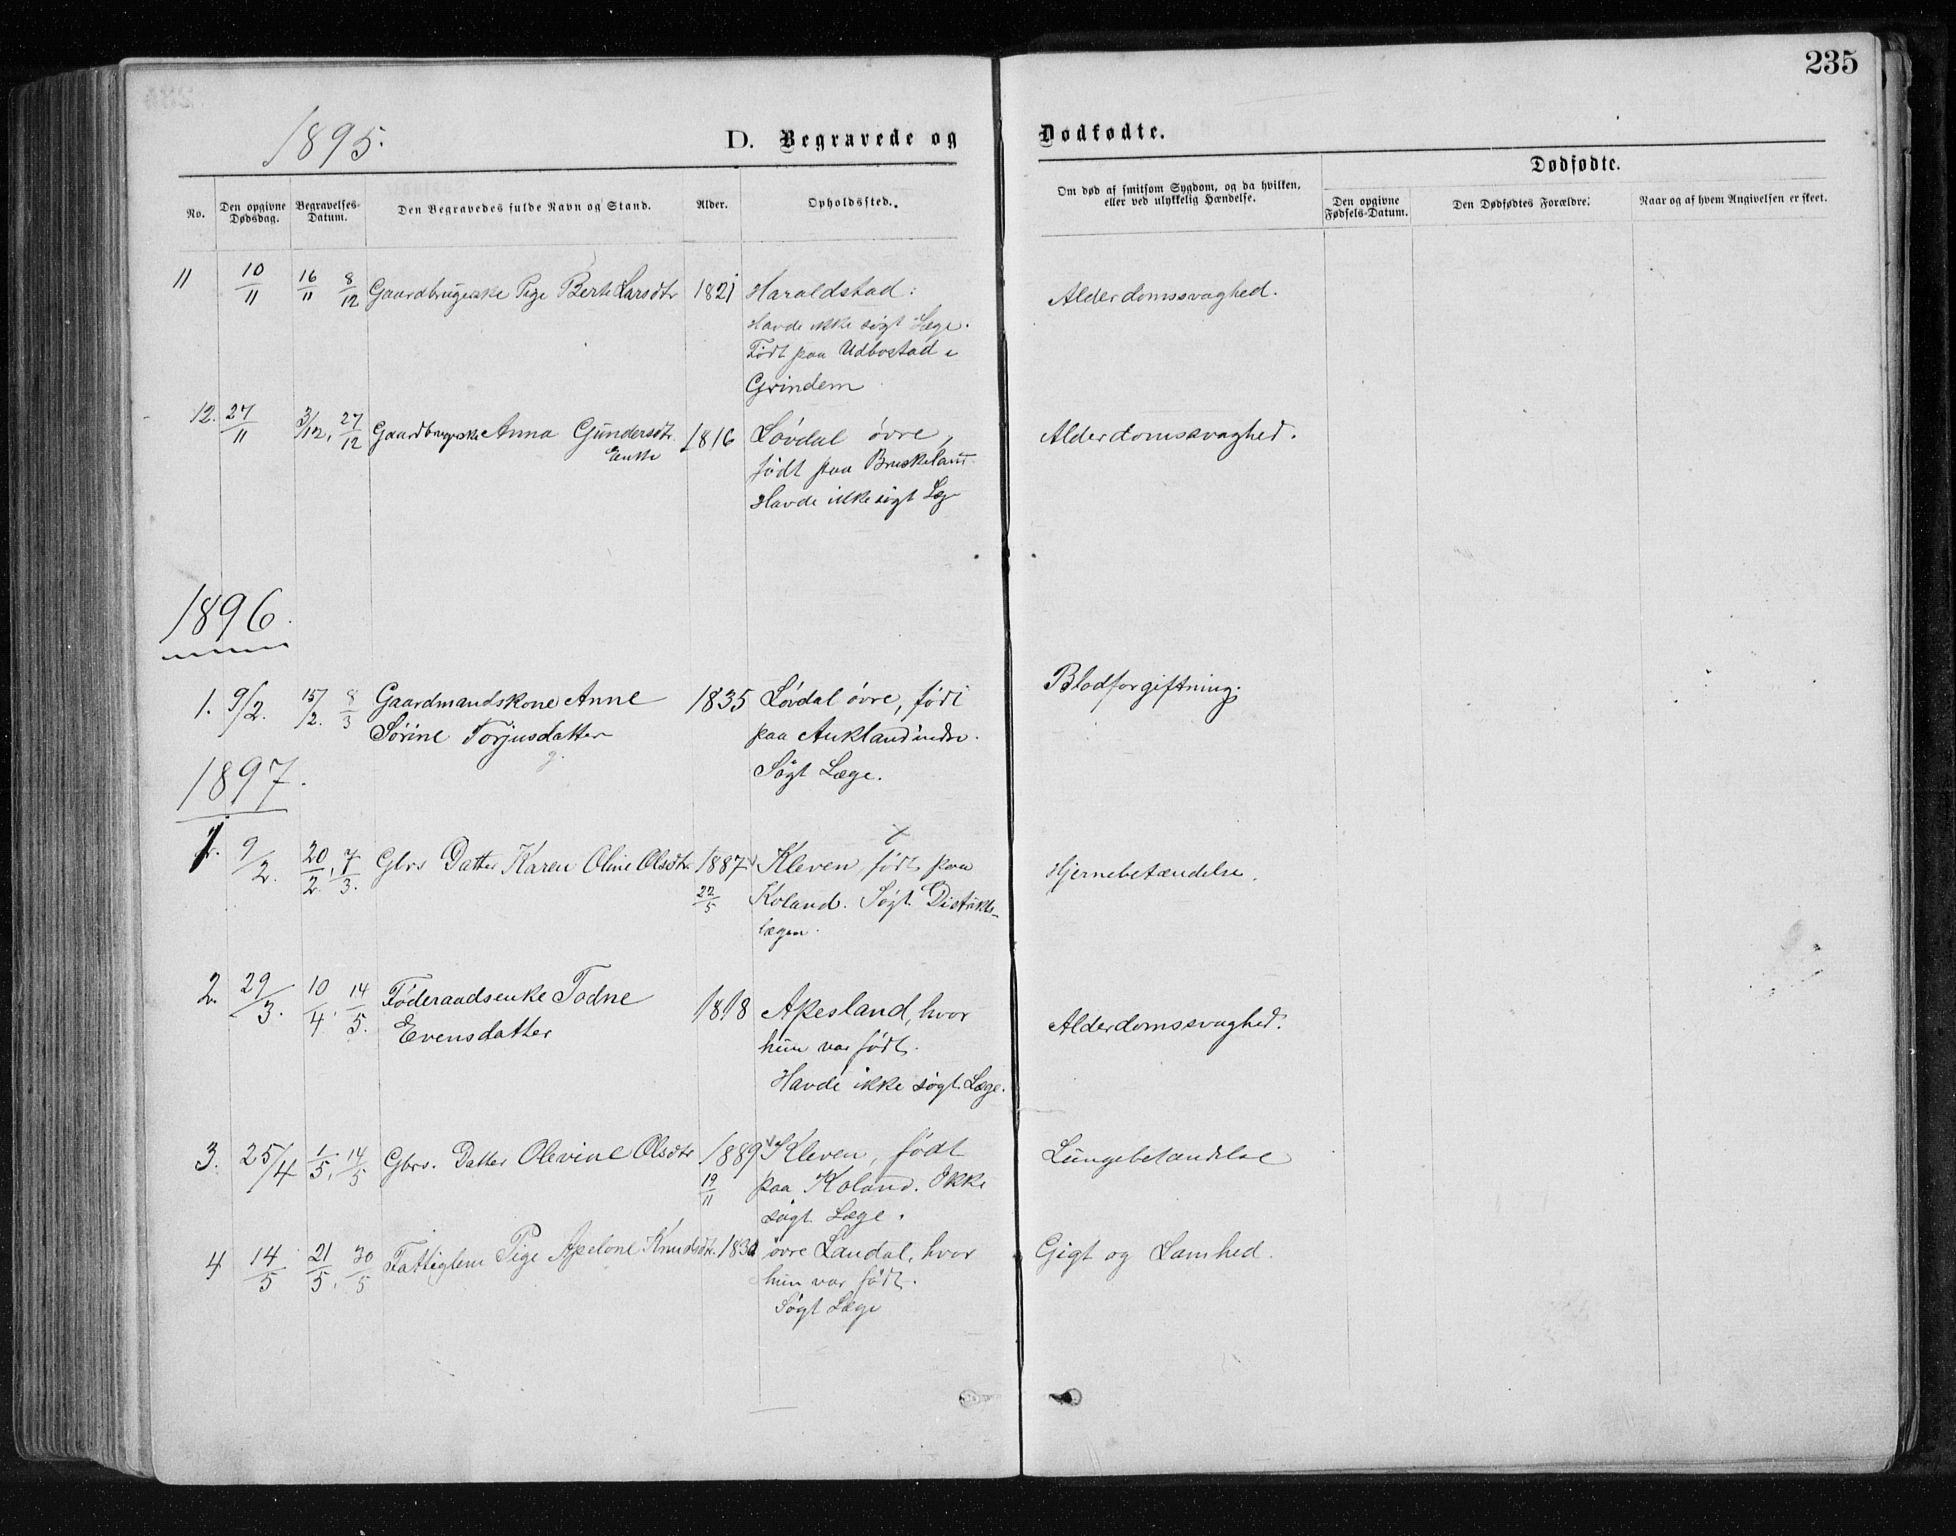 235
1895.
D. Begravede og Dødfødte.
No.
Den opgivne Dødsdag.
Begravelses-Datum.
Den Begravedes fulde Navn og Stand.
Alder.
Opholdssted.
Om død af smitsom Sygdom, og da hvilken, eller ved ulykkelig Hændelse.
Dødfødte.
Den opgivne Fødsels-Datum.
Den Dødfødtes Forældre.
Naar og af hvem Angivelsen er skeet.
11 10/11 16/11 8/12 Pige Larsdtr 1821 Haraldstad: Alderdomssvaghed.
Havde ikke søgt Læge.
Født paa Udbostad i
Grindem
12. 27/11 3/12, 27/12 Anna Gundersdtr. 1816 Løvdal øvre, Alderdomssvaghed.
Enke
født paa
Havde ikke søgt Læge
1896.
1. 9/2. 15/2. 8/3 Gaardmandskone Anne 1835 Løvdal øvre, født Blodforgiftning.
Sørine Torjusdatter paa Aukland indre.
Søgt Læge.
1897.
1. 9/2. 20/2, 7/3. Gbrs Datter Karen Oline Olsdtr 1887 Kleven, født paa Hjernebetændelse.
22/5 Koland. Søgt Distrikts-
lægen.
2. 29/3. 10/4. 14/5. Føderaadsenke Todne 1818 Apesland, hvor Alderdomssvaghed.
Evensdatter hun var født.
Havde ikke søgt Læge.
3. 25/4 1/5, 14/5 Gbrs. Datter Olevine Olsdtr 1889 Kleven, født Lungebetændelse
19/11 paa Koland. Ikke
søgt Læge.
4 14/5 21/5. 30/5 Fattiglem Pige Apelone Knudsdtr. øvre Laudal, hvor Gigt og Lamhed.
hun var født.
Søgt Læge